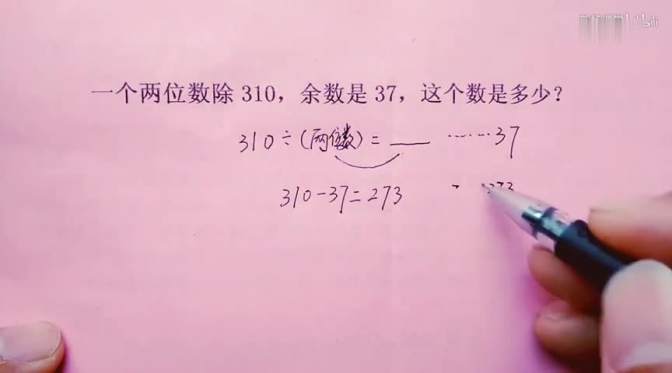 一个两位数除 310，余数是 37，这个数是多少？
310÷(两位数)=___ ……37
310-37=273